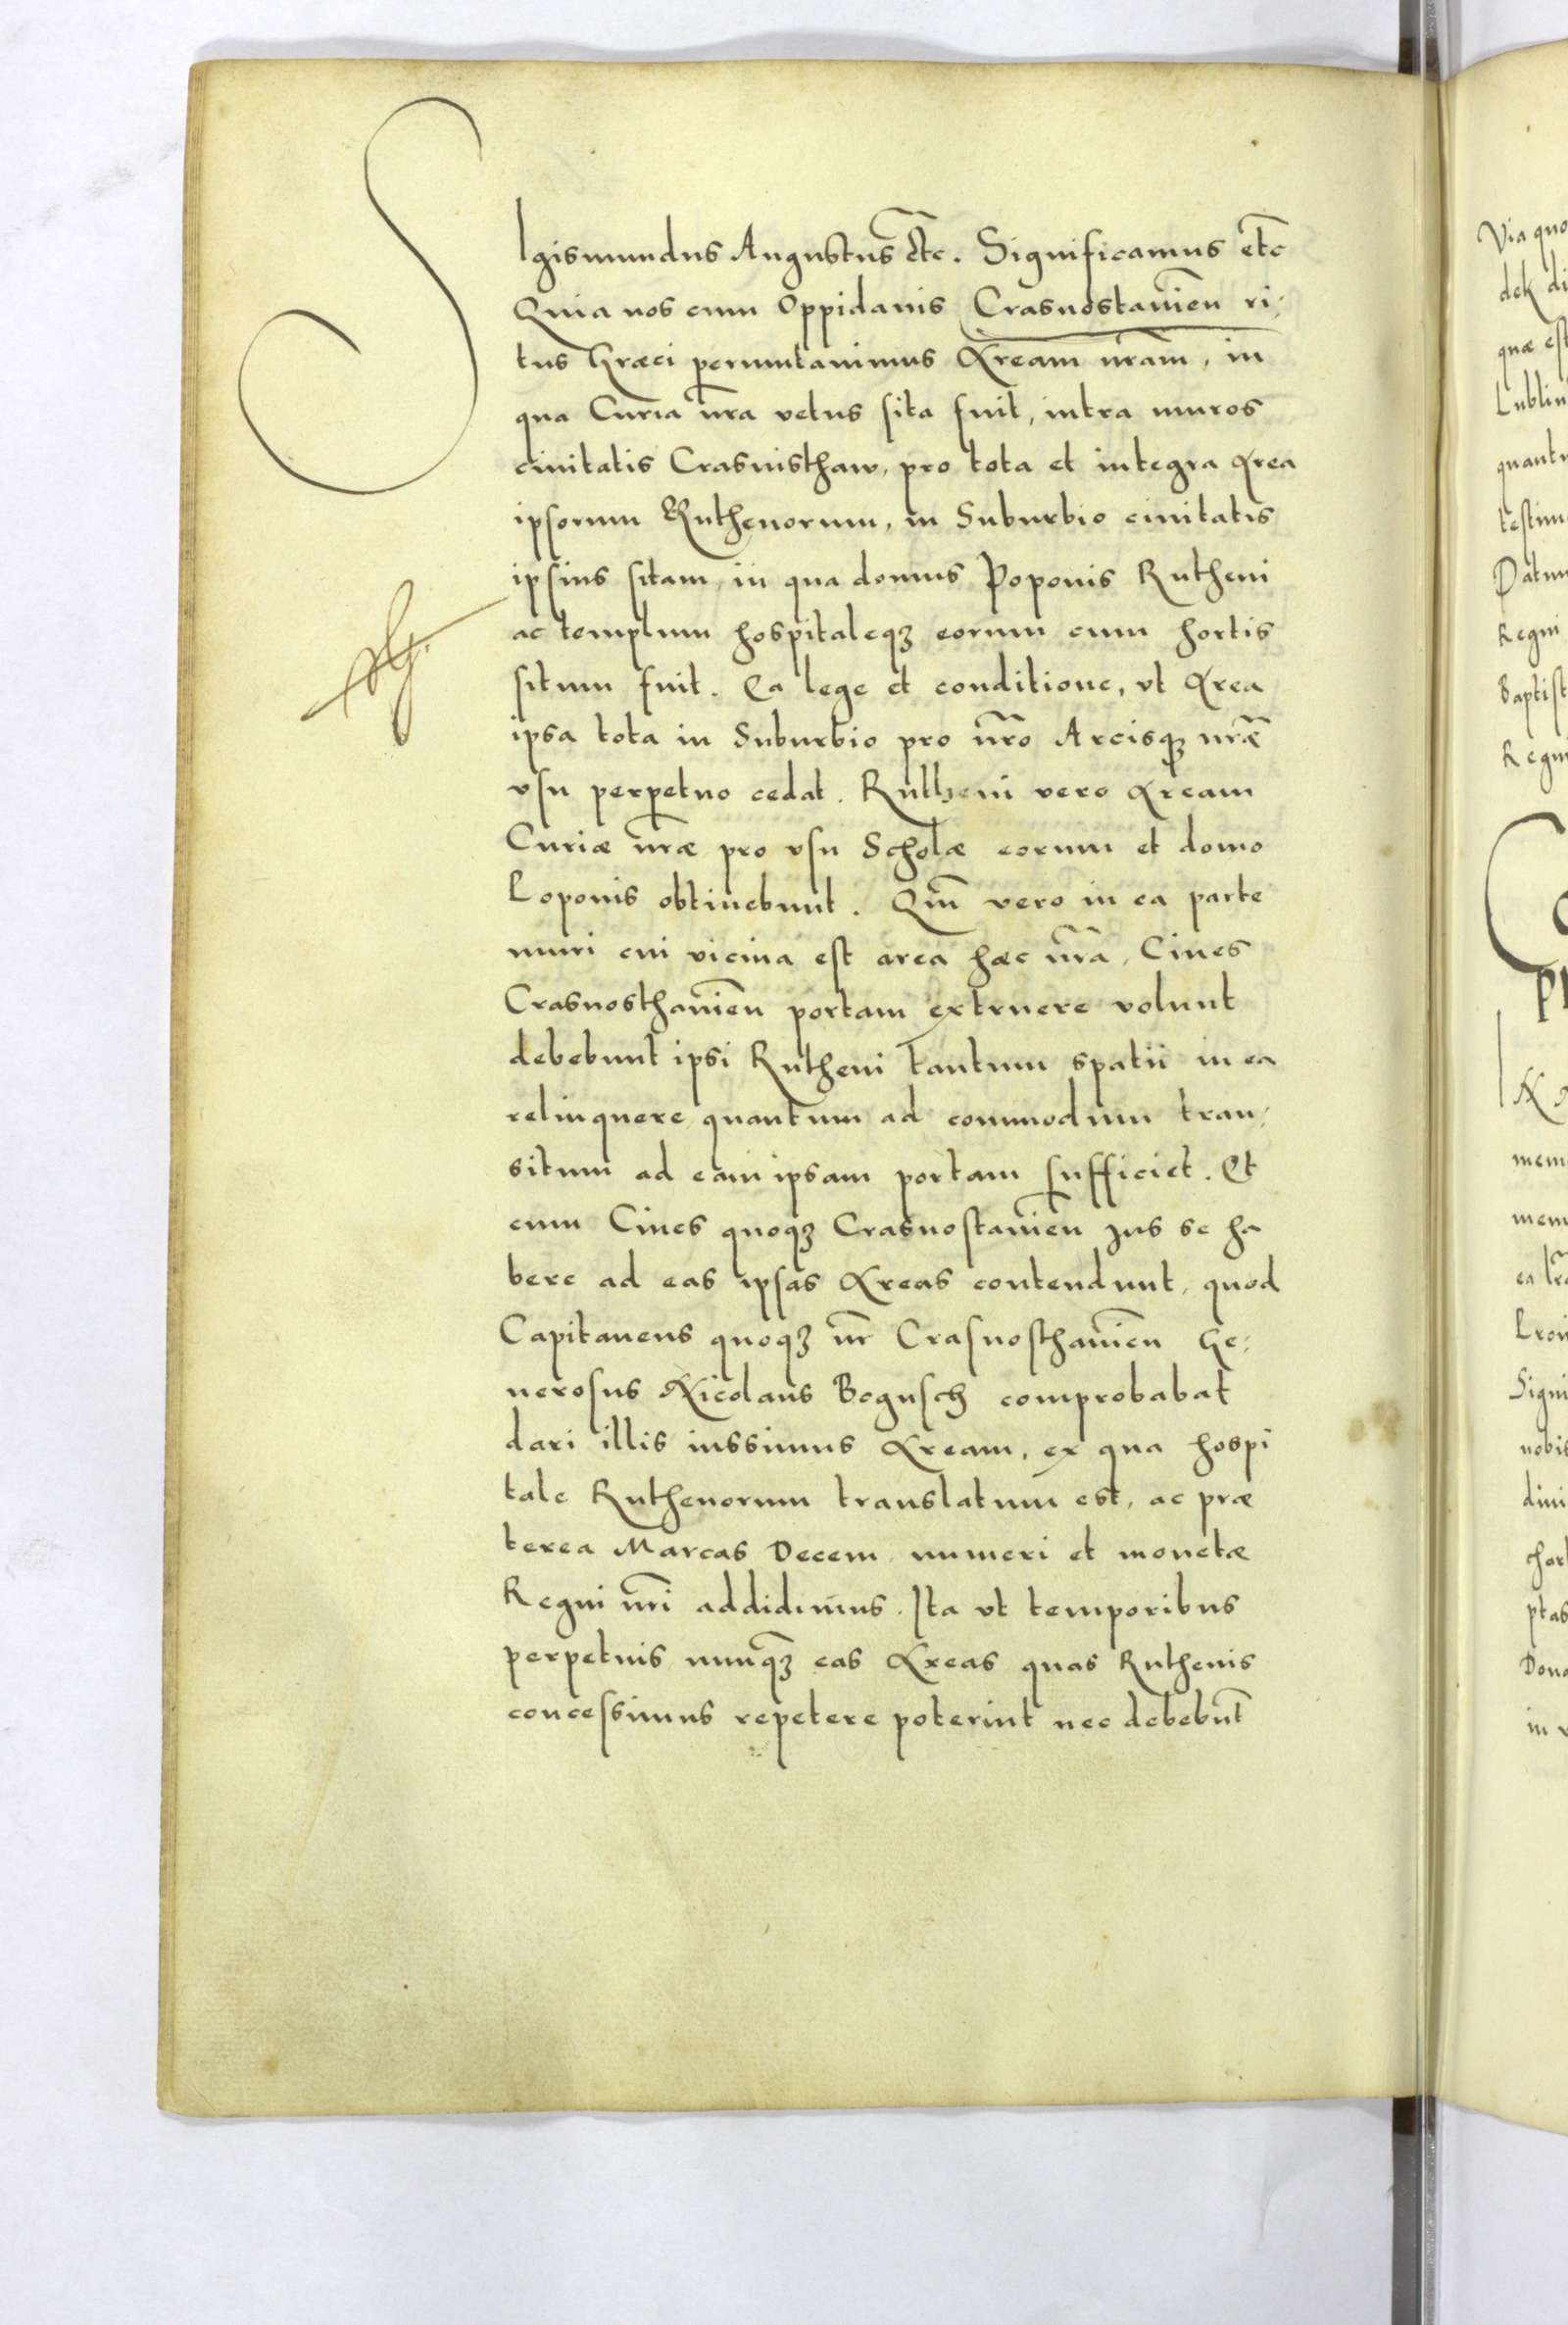 SIgismundus Augustus etc. Significamus etc
Quia nos cum Oppidanis Crasnostauien̄ ri-
tus Græci permutauimus Aream nr̄am, in
qua Curia nr̄a vetus sita fuit, intra muros
ciuitatis Crasnisthaw, pro tota et integra Area
ipsorum Ruthenorum, in Suburbio ciuitatis
ipsius sitam, in qua domus Poponis Rutheni
ac templum hospitaleqꝫ eorum cum hortis
situm fuit. Ea lege et conditione, vt Area
ipsa tota in Suburbio pro nr̄o Arcisqꝫ nr̄æ
vsu perpetuo cedat. Rutheni vero Aream
Curiæ nr̄æ pro vsu Scholæ eorum et domo
Poponis obtinebunt. Qm̄ vero in ea parte
muri cui vicina est area hæc nr̄a, Ciues
Crasnosthauien̄ portam extruere volunt
debebunt ipsi Rutheni tantum spatii in ea
relinquere quantum ad commodum tran-
situm ad eam ipsam portam sufficiet. Et
cum Ciues quoqꝫ Crasnostauien̄ Jus se ha
bere ad eas ipsas Areas contendunt, quod
Capitaneus quoqꝫ nr̄ Crasnosthauien̄ Ge-
nerosus Nicolaus Bogusch comprobabat
dari illis iussimus Aream, ex qua hospi
tale Ruthenorum translatum est, ac præ
terea Marcas Decem numeri et monetæ
Regni nr̄i addidimus. Ita vt temporibus
perpetuis nunqꝫ eas Areas quas Ruthenis
concessimus repetere poterint nec debebūt
Via quo
dek di
quæ est
Lublin
quantu
testim
Datum
Regni
Baptist
Regni
mem
mem
Signi
nobis
dini
ptas
Dona